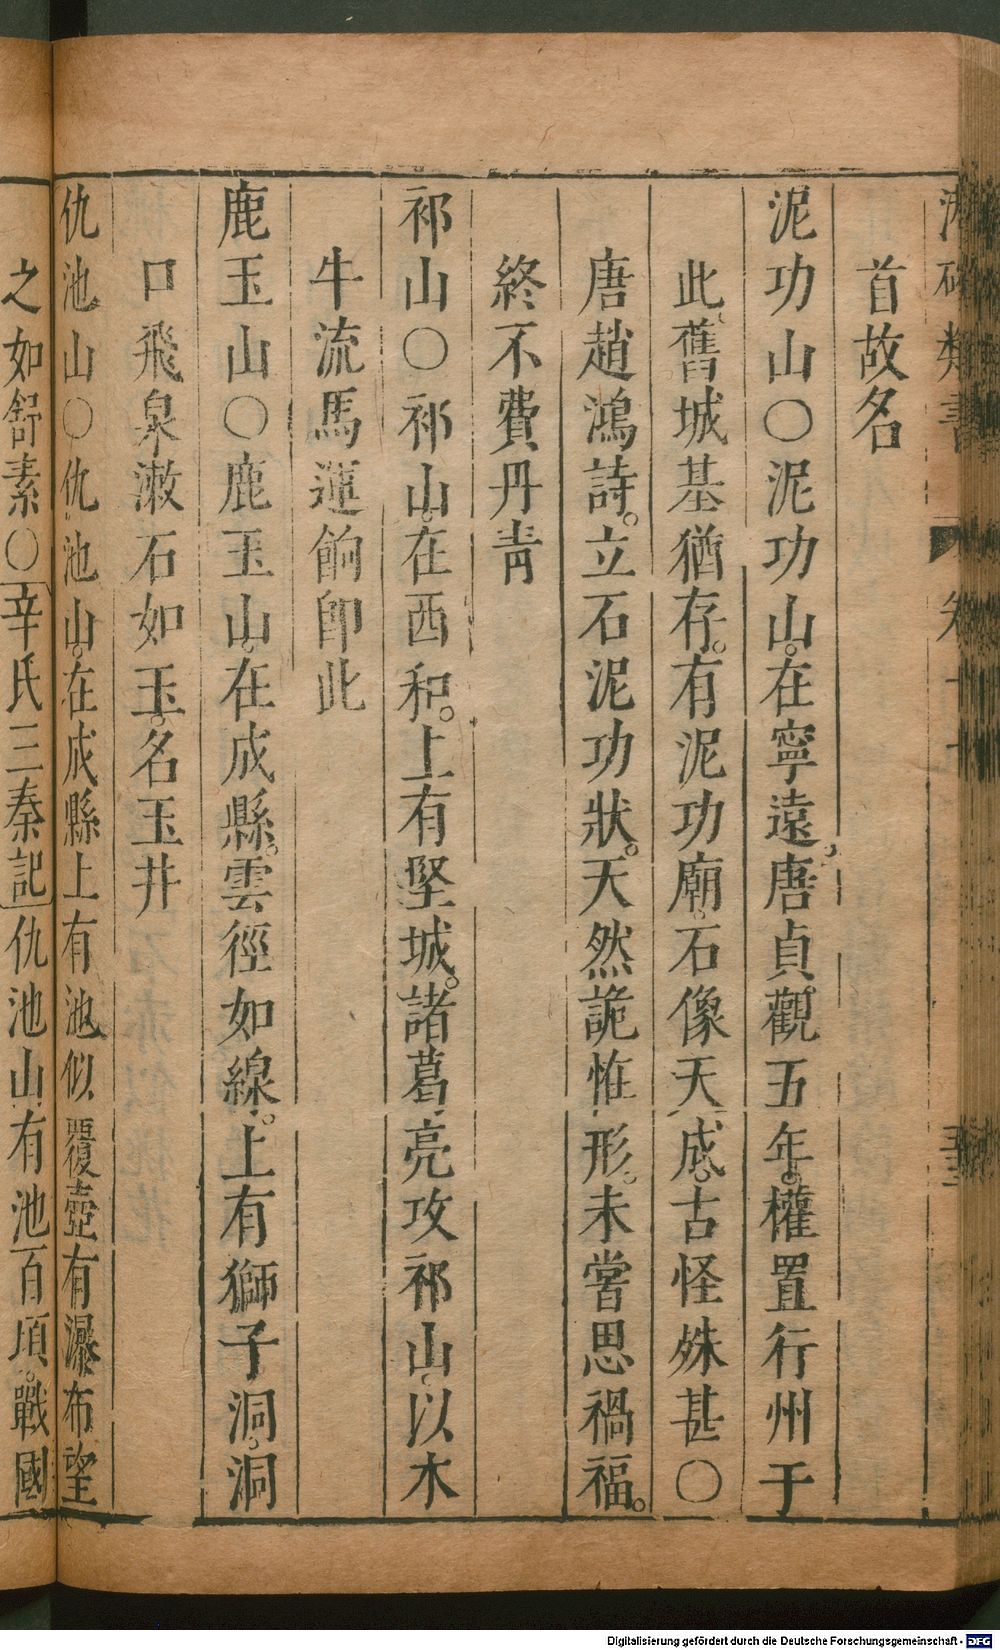 首故名
泥功山○泥功山。在寧遠。唐貞觀五年。權置行州于
此、舊城基猶存。有泥功廟。石像天成。古怪殊甚○
唐趙鴻詩。立石泥功狀。天然詭恠形。未嘗思禍福。
終不費丹靑
祁山○祁山。在西和。上有堅城。諸葛亮攻祁山、以木
牛流馬運餉卽此
鹿玉山○鹿玉山。在成縣。雲徑如線。上有獅子洞、洞
口飛泉漱石如玉。名玉井
仇池山○仇池山。在成縣上有池似覆壺有瀑布望
之如舒素○辛氏三秦記仇池山有池百頃。戰國
Digitalisierung gefördert durch die Deutsche Forschungsgemeinschaft - DFG